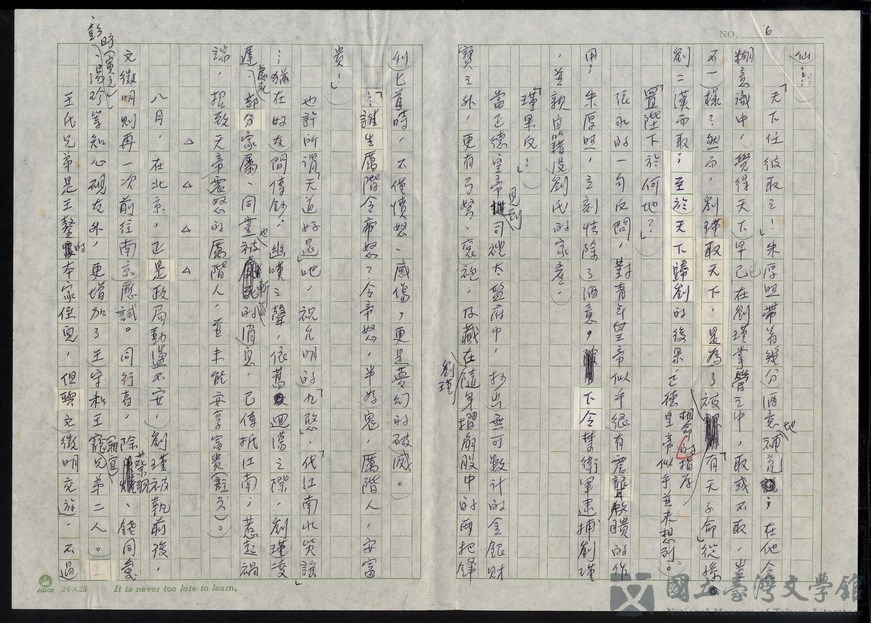 NO. 6
仙……
「天下任彼取之！」朱厚照帶著幾分酒意地補充；在他含
糊意識中，覺得天下早已在劉瑾掌管之中，取或不取，豈
不一樣？然而，劉瑾取天下，是為了被「有天子命」從孫
劉二漢而取；至於天下歸劉的後果，正德皇帝似乎並未想到。
相命的指存，
「置陛下於何地？」
張永的一句反問，對青年皇帝似乎很有震聾啟聵的作
用；朱厚照，立刻清除了酒意，下令禁衛軍逮捕劉瑾
，並親自籍沒劉氏的家產。
「瑾果反！」
當正德皇帝見到司禮太監府中，抄出無可數計的金銀財
寶之外，更有弓弩、袞袍，及藏在劉瑾隨身摺扇股中的兩把鋒
利匕首時，不僅憤怒、感傷，更是夢幻的破滅。
「……誰生厲階令帝怒？令帝怒，半為鬼，厲階人，安富
貴！」
也許所謂「天道好還」吧，祝允明的「九愍」、代江南北笑謠
……猶在好友間傳鈔，幽嘆之聲，依舊迴蕩之際，劉瑾凌
遲處死，部分家屬、同黨也被斬首的消息，已傳抵江南，惹起禍
端，招致天帝震怒的厲階人，並未能安享富貴(註六)。
△ △ △ △
八月，在北京，正是政局動盪不安，劉瑾被執前後，
文徵明則再一次前往南京應試。同行者，除蔡羽、錢同愛
、湯珍等知心硯友外，更增加了王守和王寵兄弟二人。
王氏兄弟是王鏊的本家侄兒，但與文徵明交遊，不過
24×25 It is never too late to learn.
國立臺灣文學館
National Museum of Taiwan Literature